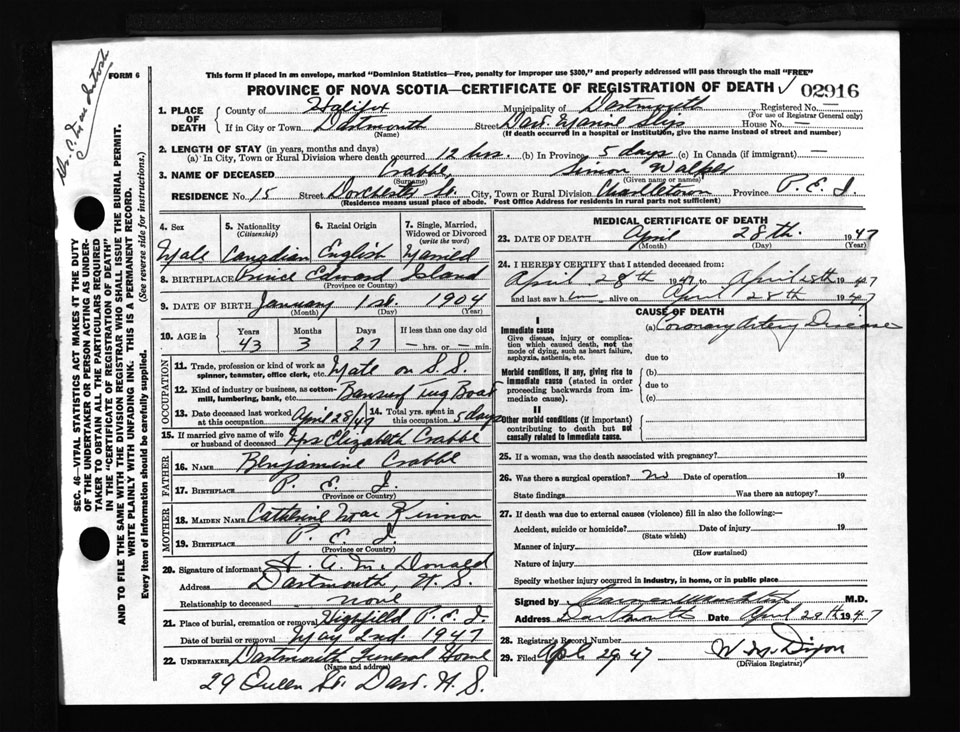 Dr. C. MacIntosh
FORM 6
SEC. 46-VITAL STATISTICS ACT MAKES AT THE DUTY
OF THE UNDERTAKER OR PERSON ACTING AS UNDER-
TAKER TO OBTAIN ALL THE PARTICULARS REQUIRED
IN THE "CERTIFICATE OF REGISTRATION OF DEATH"
AND TO FILE THE SAME WITH THE DIVISION REGISTRAR WHO SHALL ISSUE THE BURIAL PERMIT.
WRITE PLAINLY WITH UNFADING INK. THIS IS A PERMANENT RECORD.
Every item of information should be carefully supplied. (See reverse side for instructions.)
This form if placed in an envelope, marked "Dominion Statistics—Free, penalty for improper use $300," and properly addressed will pass through the mail "FREE"
PROVINCE OF NOVA SCOTIA—CERTIFICATE OF REGISTRATION OF DEATH 02916
1. PLACE OF DEATH County of Halifax Municipality of Dartmouth Registered No. —
(For use of Registrar General only)
If in City or Town Dartmouth Street Dart. Marine Slips House No. —
(Name) (If death occurred in a hospital or institution, give the name instead of street and number)
2. LENGTH OF STAY (in years, months and days)
(a) In City, Town or Rural Division where death occurred 12 hrs. (b) In Province 5 days (c) In Canada (if immigrant) —
3. NAME OF DECEASED Crabbe Simon Walker
(Surname) (Given name or names)
RESIDENCE No. 15 Street Dorchester St. City, Town or Rural Division Charlletown Province P.E.I.
(Residence means usual place of abode. Post Office Address for residents in rural parts not sufficient)
4. Sex 5. Nationality (Citizenship) 6. Racial Origin 7. Single, Married, Widowed or Divorced (write the word)
Male Canadian English Married
8. BIRTHPLACE Prince Edward Island
(Province or Country)
9. DATE OF BIRTH January 1st. 1904
(Month) (Day) (Year)
10. AGE in Years Months Days If less than one day old
43 3 27 — hrs. or — min.
OCCUPATION
11. Trade, profession or kind of work as spinner, teamster, office clerk, etc. Mate on S.S.
12. Kind of industry or business, as cotton-mill, lumbering, bank, etc. Tug Boat
13. Date deceased last worked at this occupation April 28/47 14. Total yrs. spent in this occupation 5 days
15. If married give name of wife or husband of deceased Mrs Elizabeth Crabbe
FATHER
16. NAME Benjamine Crabbe
17. BIRTHPLACE P.E.I.
(Province or Country)
MOTHER
18. MAIDEN NAME Catherine MacKinnon
19. BIRTHPLACE P.E.I.
(Province or Country)
20. Signature of informant A. A. McDonald
Address Dartmouth, N.S.
Relationship to deceased none
21. Place of burial, cremation or removal Highfield P.E.I.
Date of burial or removal May 2nd. 1947
22. UNDERTAKER Dartmouth Funeral Home
(Name and address)
29 Queen St. Dart. N.S.
MEDICAL CERTIFICATE OF DEATH
23. DATE OF DEATH April 28th. 1947
(Month) (Day) (Year)
24. I HEREBY CERTIFY that I attended deceased from
April 28th 1947 to April 28th 1947
and last saw him alive on April 28th 1947
CAUSE OF DEATH
I
Immediate cause (a) Coronary Artery Disease
Give disease, injury or complication which caused death, not the mode of dying, such as heart failure, asphyxia, asthenia, etc.
due to
Morbid conditions, if any, giving rise to immediate cause (stated in order proceeding backwards from immediate cause). (b)
due to
(c)
II
Other morbid conditions (if important) contributing to death but not causally related to immediate cause.
25. If a woman, was the death associated with pregnancy?
26. Was there a surgical operation? No Date of operation 19
State findings Was there an autopsy?
27. If death was due to external causes (violence) fill in also the following:—
Accident, suicide or homicide? Date of injury 19
(State which)
Manner of injury
(How sustained)
Nature of injury
Specify whether injury occurred in industry, in home, or in public place
Signed by M.D.
Address Dartmouth Date April 29th 1947
28. Registrar's Record Number
29. Filed Apl. 29. 47 W. M. Dixon
(Division Registrar)